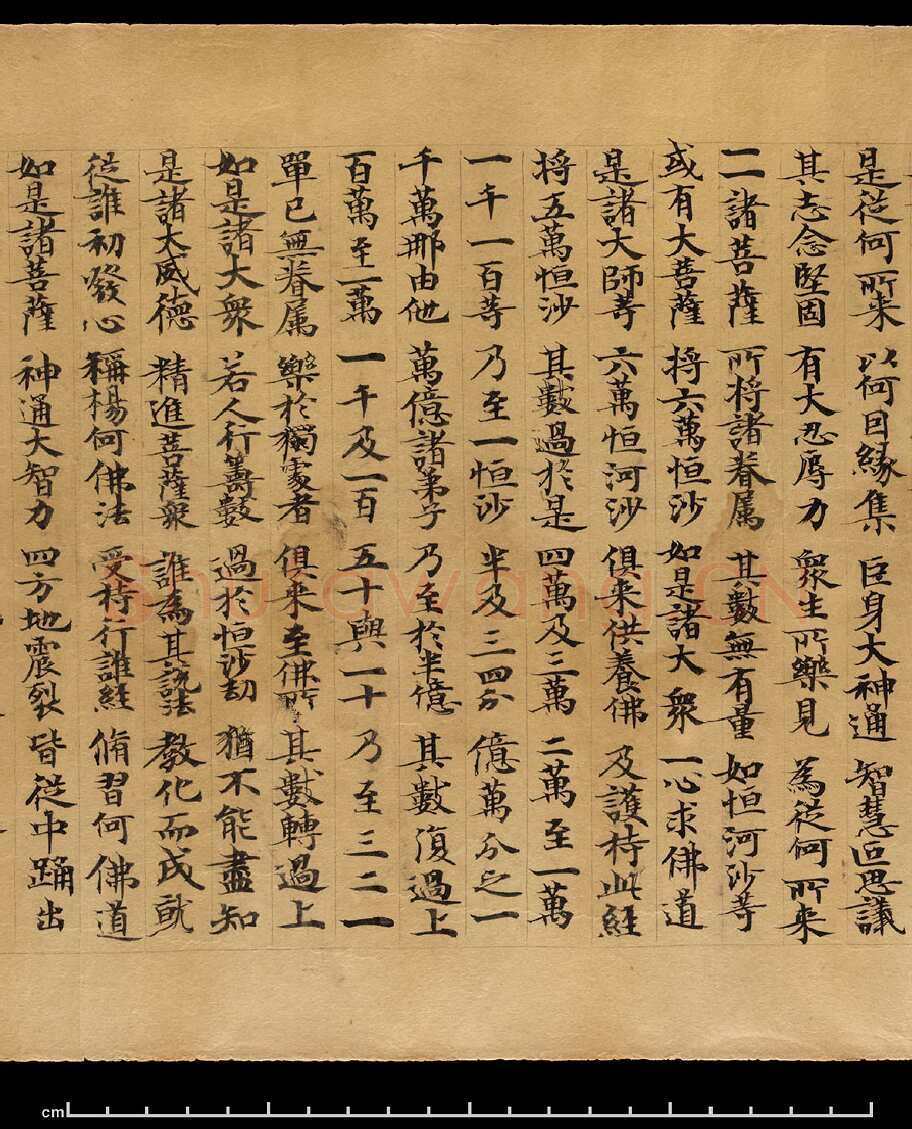 是從何所来 以何因緣集 巨身大神通 智慧叵思議
其志念堅固 有大忍辱力 衆生所樂見 為從何所来
一一諸菩薩 所將諸眷属 其數無有量 如恒河沙等
或有大菩薩 將六萬恒沙 如是諸大衆 一心求佛道
是諸大師等 六萬恒河沙 俱来供養佛 及護持此經
將五萬恒沙 其數過於是 四萬及三萬 二萬至一萬
一千一百等 乃至一恒沙 半及三四分 億萬分之一
千萬那由他 萬億諸弟子 乃至於半億 其數復過上
百萬至一萬 一千及一百 五十與一十 乃至三二一
單已無眷属 樂於獨處者 俱来至佛所 其數轉過上
如是諸大衆 若人行籌數 過於恒沙劫 猶不能盡知
是諸大威德 精進菩薩衆 誰為其說法 教化而成就
從誰初發心 稱揚何佛法 受持行誰經 脩習何佛道
如是諸菩薩 神通大智力 四方地震裂 皆從中踊出
Shufawang.CN
cm